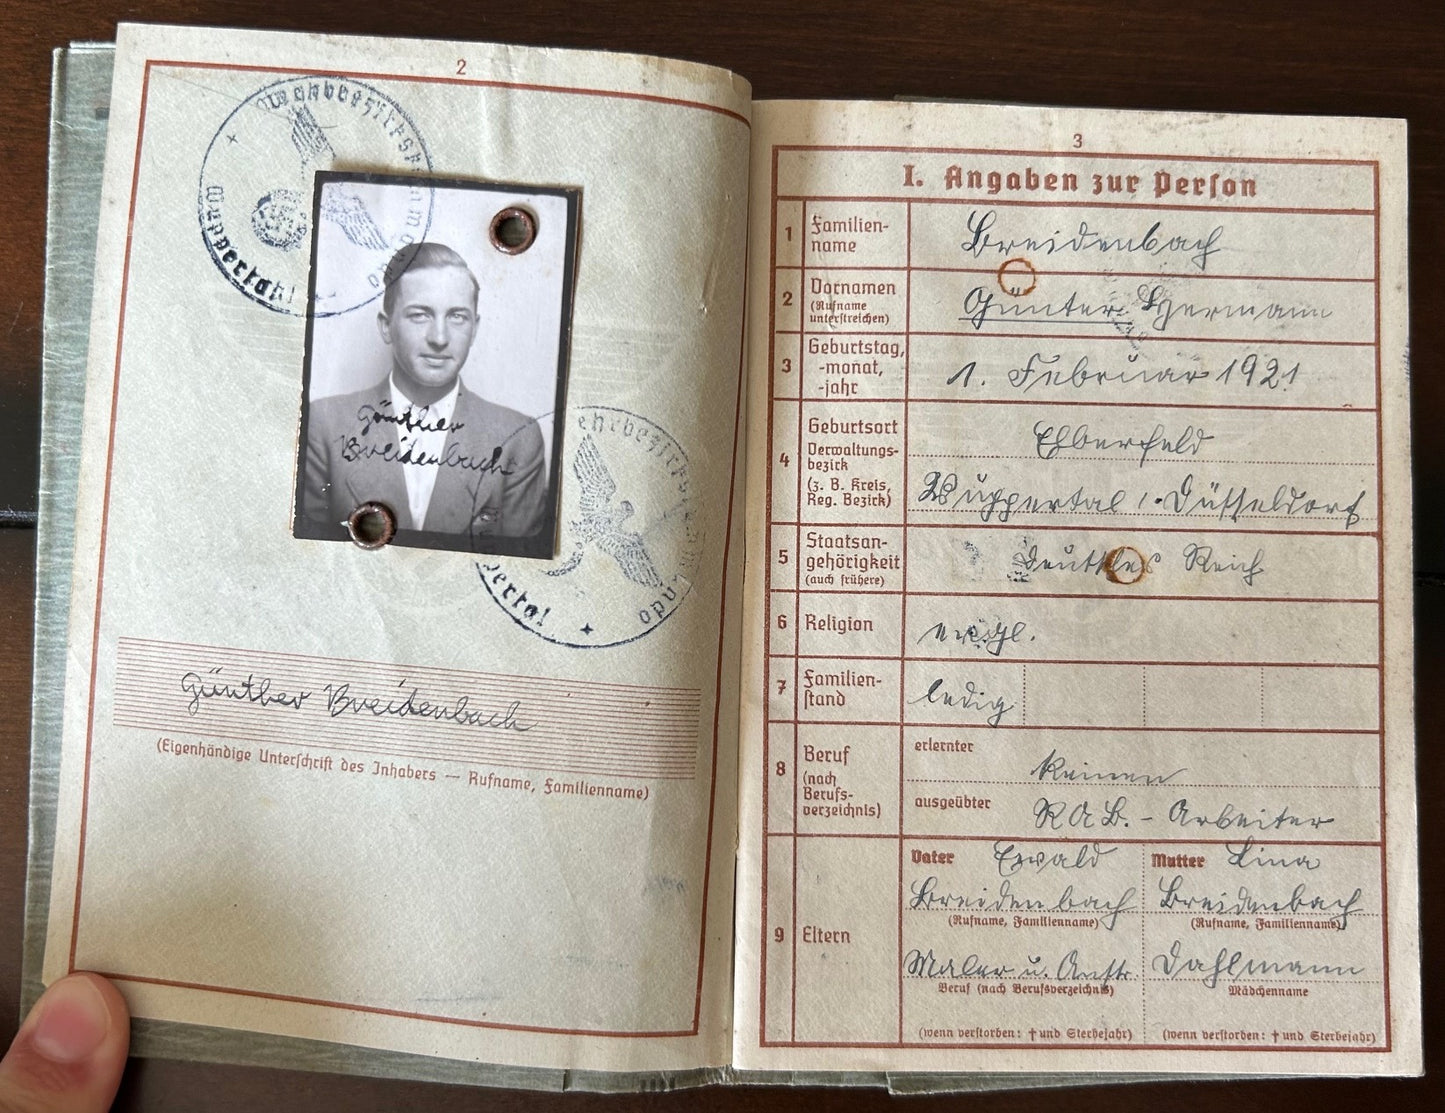 2
Wehrbezirkskommando
Wuppertal
Günther
Breidenbach
Wehrbezirkskommando
Wuppertal
Günther Breidenbach
(Eigenhändige Unterschrift des Inhabers — Rufname, Familienname)
3
I. Angaben zur Person
1 Familien-
name
Breidenbach
2 Vornamen
(Rufname
unterstreichen)
Günter Hermann
3 Geburtstag,
-monat,
-jahr
1. Februar 1921
4 Geburtsort
Verwaltungs-
bezirk
(z. B. Kreis,
Reg. Bezirk)
Elberfeld
Wuppertal, Düsseldorf
5 Staatsan-
gehörigkeit
(auch frühere)
Deutsches Reich
6 Religion
evgl.
7 Familien-
stand
ledig
8 Beruf
(nach
Berufs-
verzeichnis)
erlernter
keinen
ausgeübter
RAB.-Arbeiter
9 Eltern
Vater Ewald
Breidenbach
(Rufname, Familienname)
Maler u. Anstr.
Beruf (nach Berufsverzeichnis)
(wenn verstorben: † und Sterbejahr)
Mutter Lina
Breidenbach
(Rufname, Familienname)
Dahlmann
Mädchenname
(wenn verstorben: † und Sterbejahr)